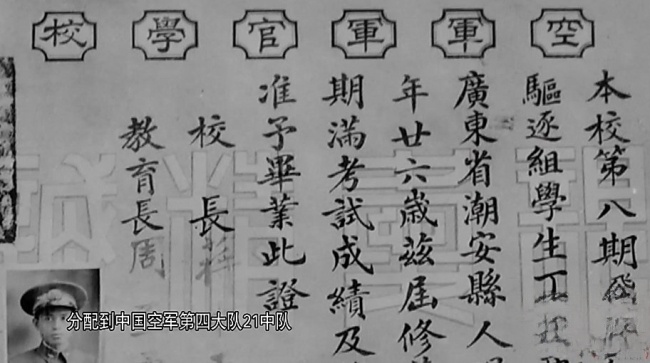 空軍軍官學校
本校第八期
驅逐組學生丁
廣東省潮安縣人
年廿六歲茲屆修
期滿考試成績及
准予畢業此證
校長
教育長周
分配到中国空军第四大队21中队